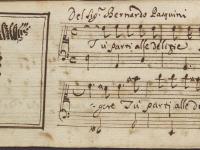 Del Sig.r Bernardo Pasquini
Tu parti alle delizie
gire Tu parti alle de